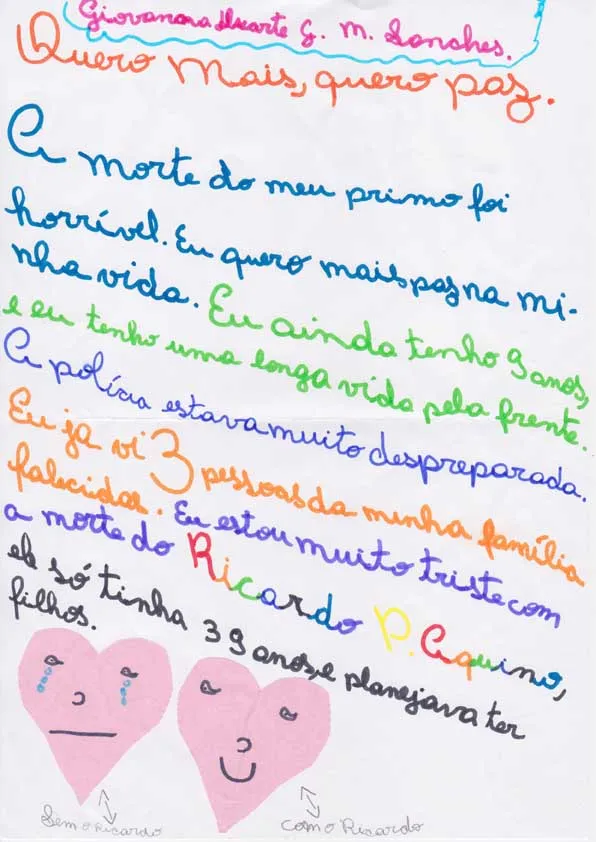 Giovanna Duarte G. M. Sanches.
Quero Mais, quero paz.
A morte do meu primo foi
horrível. Eu quero mais paz na mi-
nha vida. Eu ainda tenho 9 anos,
e eu tenho uma longa vida pela frente.
A polícia estava muito despreparada.
Eu já vi 3 pessoas da minha família
falecidas. Eu estou muito triste com
a morte do Ricardo P. Aquino,
ele só tinha 39 anos, e planejava ter
filhos.
Sem o Ricardo
com o Ricardo